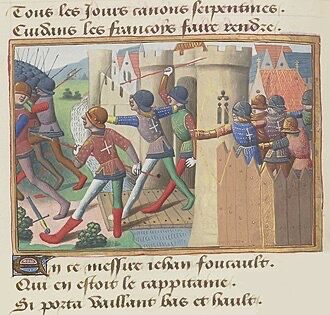 Tous les Jours canons serpentines.
Cuidans les francois faire rendre.
En ce messire iehan foucault.
Qui en estoit le cappitaine.
Si porta vaillant bas et hault.